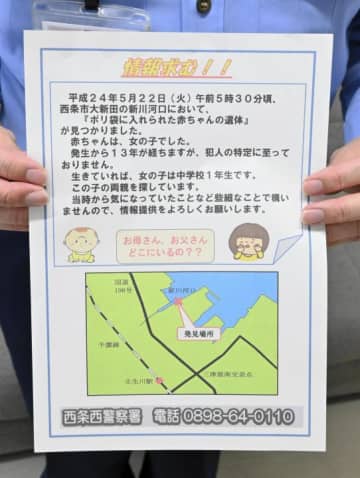 情報求む！！
平成２４年５月２２日（火）午前５時３０分頃、
西条市大新田の新川河口において、
『ポリ袋に入れられた赤ちゃんの遺体』
が見つかりました。
赤ちゃんは、女の子でした。
発生から１３年が経ちますが、犯人の特定に至って
おりません。
生きていれば、女の子は中学校１年生です。
この子の両親を探しています。
当時から気になっていたことなど些細なことで構い
ませんので、情報提供をよろしくお願いします。
お母さん、お父さん
どこにいるの？？
国道
196号
新川河口
発見場所
予讃線
壬生川駅
西条西警察署 電話 0898-64-0110